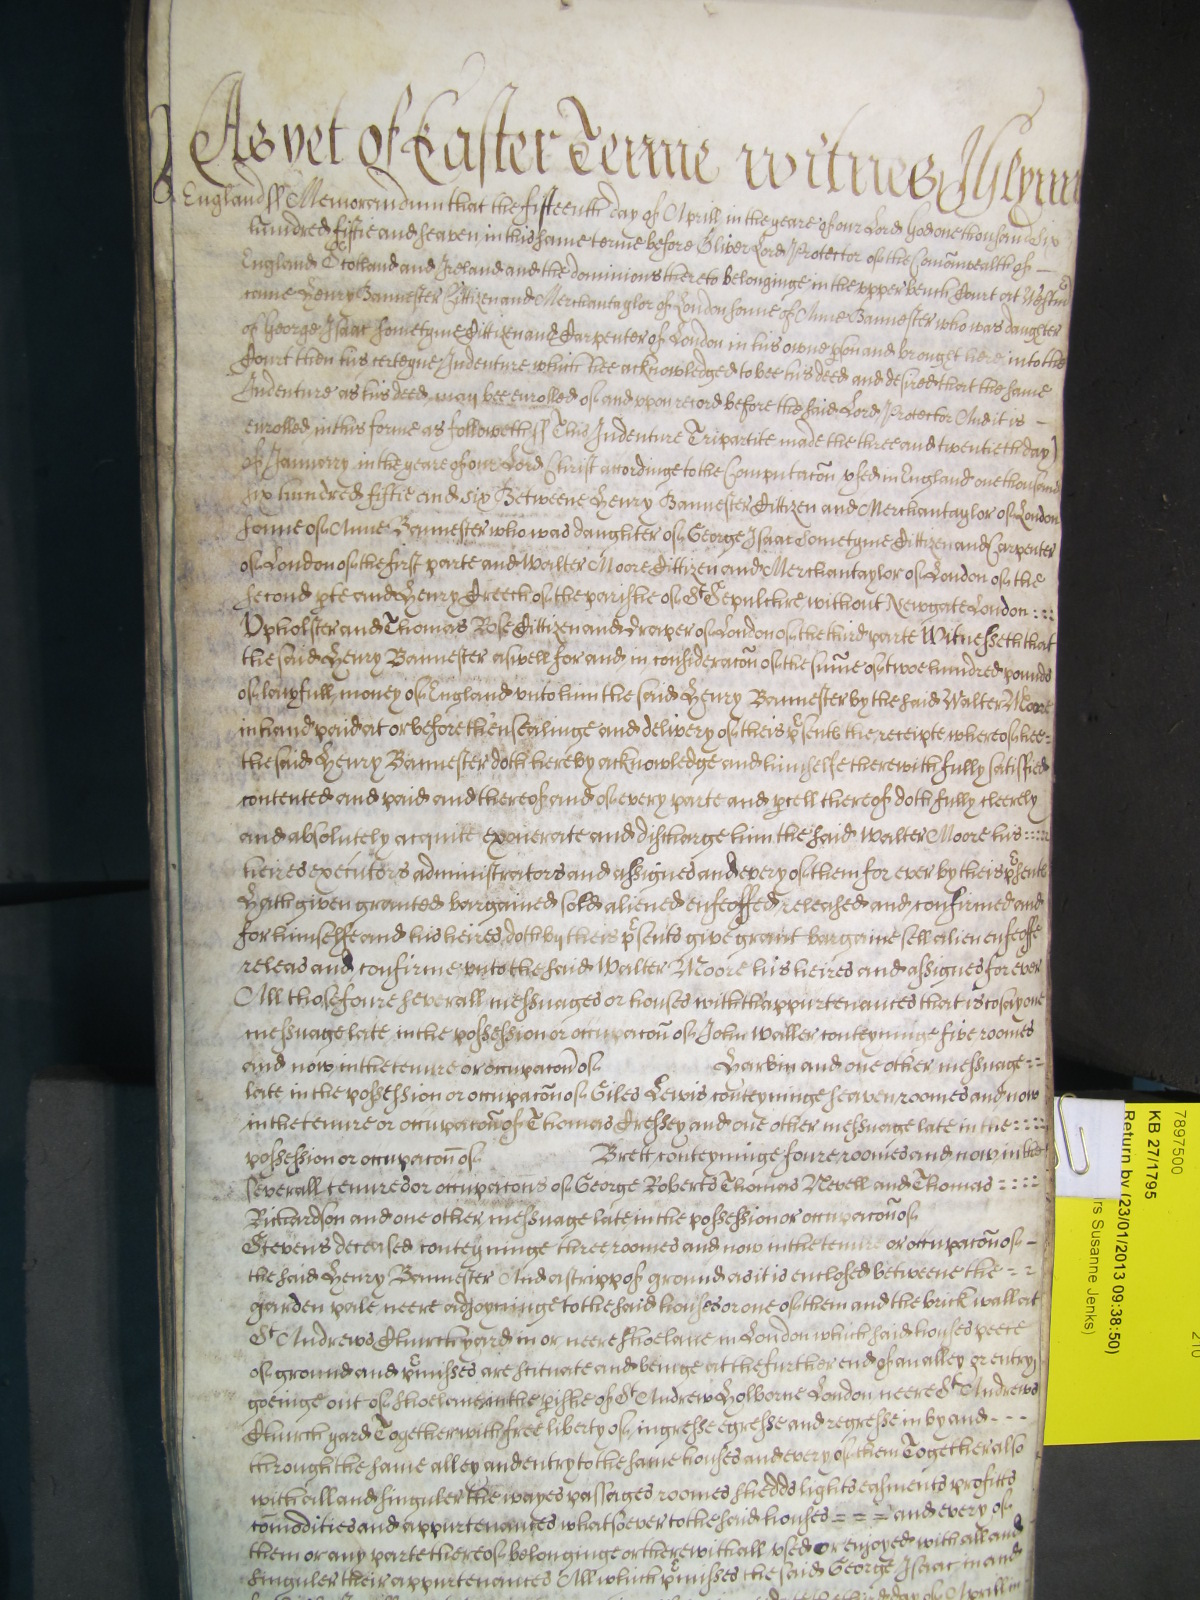 As yet of Easter Terme witnes J Glynn
England ss Memorandum that the fifteenth day of Aprill in the yeare of our Lord God one thousand six
hundred fiftie and seaven in this same terme before Oliver Lord Protector of the Comonwealth of —
England Scotland and Ireland and the dominions thereto belonginge in the upper bench Court att Westm
came Henry Bannester Cittizen and Merchantaylor of London sonne of Anne Bannester who was daughter
of George Isaac sometyme Cittizen and Carpenter of London in his owne pson and brought here into the
Court then his certeyne Indenture which hee acknowledged to bee his deed and desired that the same
Indenture as his deed may bee enrolled of and upon record before the said Lord Protector And it is —
enrolled in this forme as followeth ss This Indenture Tripartite made the three and twentieth day
of January in the yeare of our Lord Christ accordinge to the Computacon used in England one thousand
six hundred fiftie and six Betweene Henry Bannester Cittizen and Merchantaylor of London
sonne of Anne Bannester who was daughter of George Isaac Sometyme Cittizen and Carpenter
of London of the first parte and Walter Moore Cittizen and Merchantaylor of London of the
second pte and Henry Creech of the parishe of St Sepulchre without Newgate London
Upholster and Thomas Rose Cittizen and Draper of London of the third parte Witnesseth that
the said Henry Bannester aswell for and in consideracon of the sume of twoe hundred pounds
of lawfull money of England unto him the said Henry Bannester by the said Walter Moore
in hand paid at or before thensealinge and delivery of theis psents the receipte whereof hee
the said Henry Bannester doth hereby acknowledge and himselfe therewith fully satisfied
contented and paid and thereof and of every parte and pcell thereof doth fully cleerely
and absolutely acquite exonerate and discharge him the said Walter Moore his
heires executors administrators and assignes and every of them for ever by theis psents
Hath given granted bargained sold aliened enfeoffed released and confirmed and
for himselfe and his heires doth by theis psents give grant bargaine sell alien enfeoffe
releas and confirme unto the said Walter Moore his heires and assignes for ever
All those foure severall messuages or houses with thappurtenances that is to say one
messuage late in the possession or occupacon of John Waller conteyninge five roomes
and now in the tenure or occupacon of Harbin and one other messuage
late in the possession or occupacon of Giles Lewis conteyninge seaven roomes and now
in the tenure or occupacon of Thomas Cressey and one other messuage late in the
possession or occupacon of Brett conteyninge foure roomes and now in the
severall tenures or occupacons of George Roberts Thomas Nevell and Thomas
Richardson and one other messuage late in the possession or occupacon of
Stevens deceased conteyninge three roomes and now in the tenure or occupacon of —
the said Henry Bannester And a stripp of ground as it is enclosed betweene the
garden pale neere adjoyninge to the said houses or one of them and the brick wall at
St Andrews Church yard in or neere Shoelane in London which said houses peece
of ground and pmisses are scituate and beinge at the further end of an alley or entry
goeinge out of Shoelane in the pishe of St Andrew Holborne London neere St Andrews
Church yard Together with free liberty of ingresse egresse and regresse in by and
through the same alley and entry to the same houses and every of them Together also
with all and singuler the wayes passages roomes shedds lights easments profitts
comodities and appurtenances whatsoever to the said houses = = = and every of
them or any parte thereof belonginge or therewithall used or enjoyed with all and
singuler their appurtenances All which pmisses the said George Isaac in and
day of Aprill in
7897500
KB 27/1795
Return by (23/01/2013 09:38:50)
rs Susanne Jenks)
210